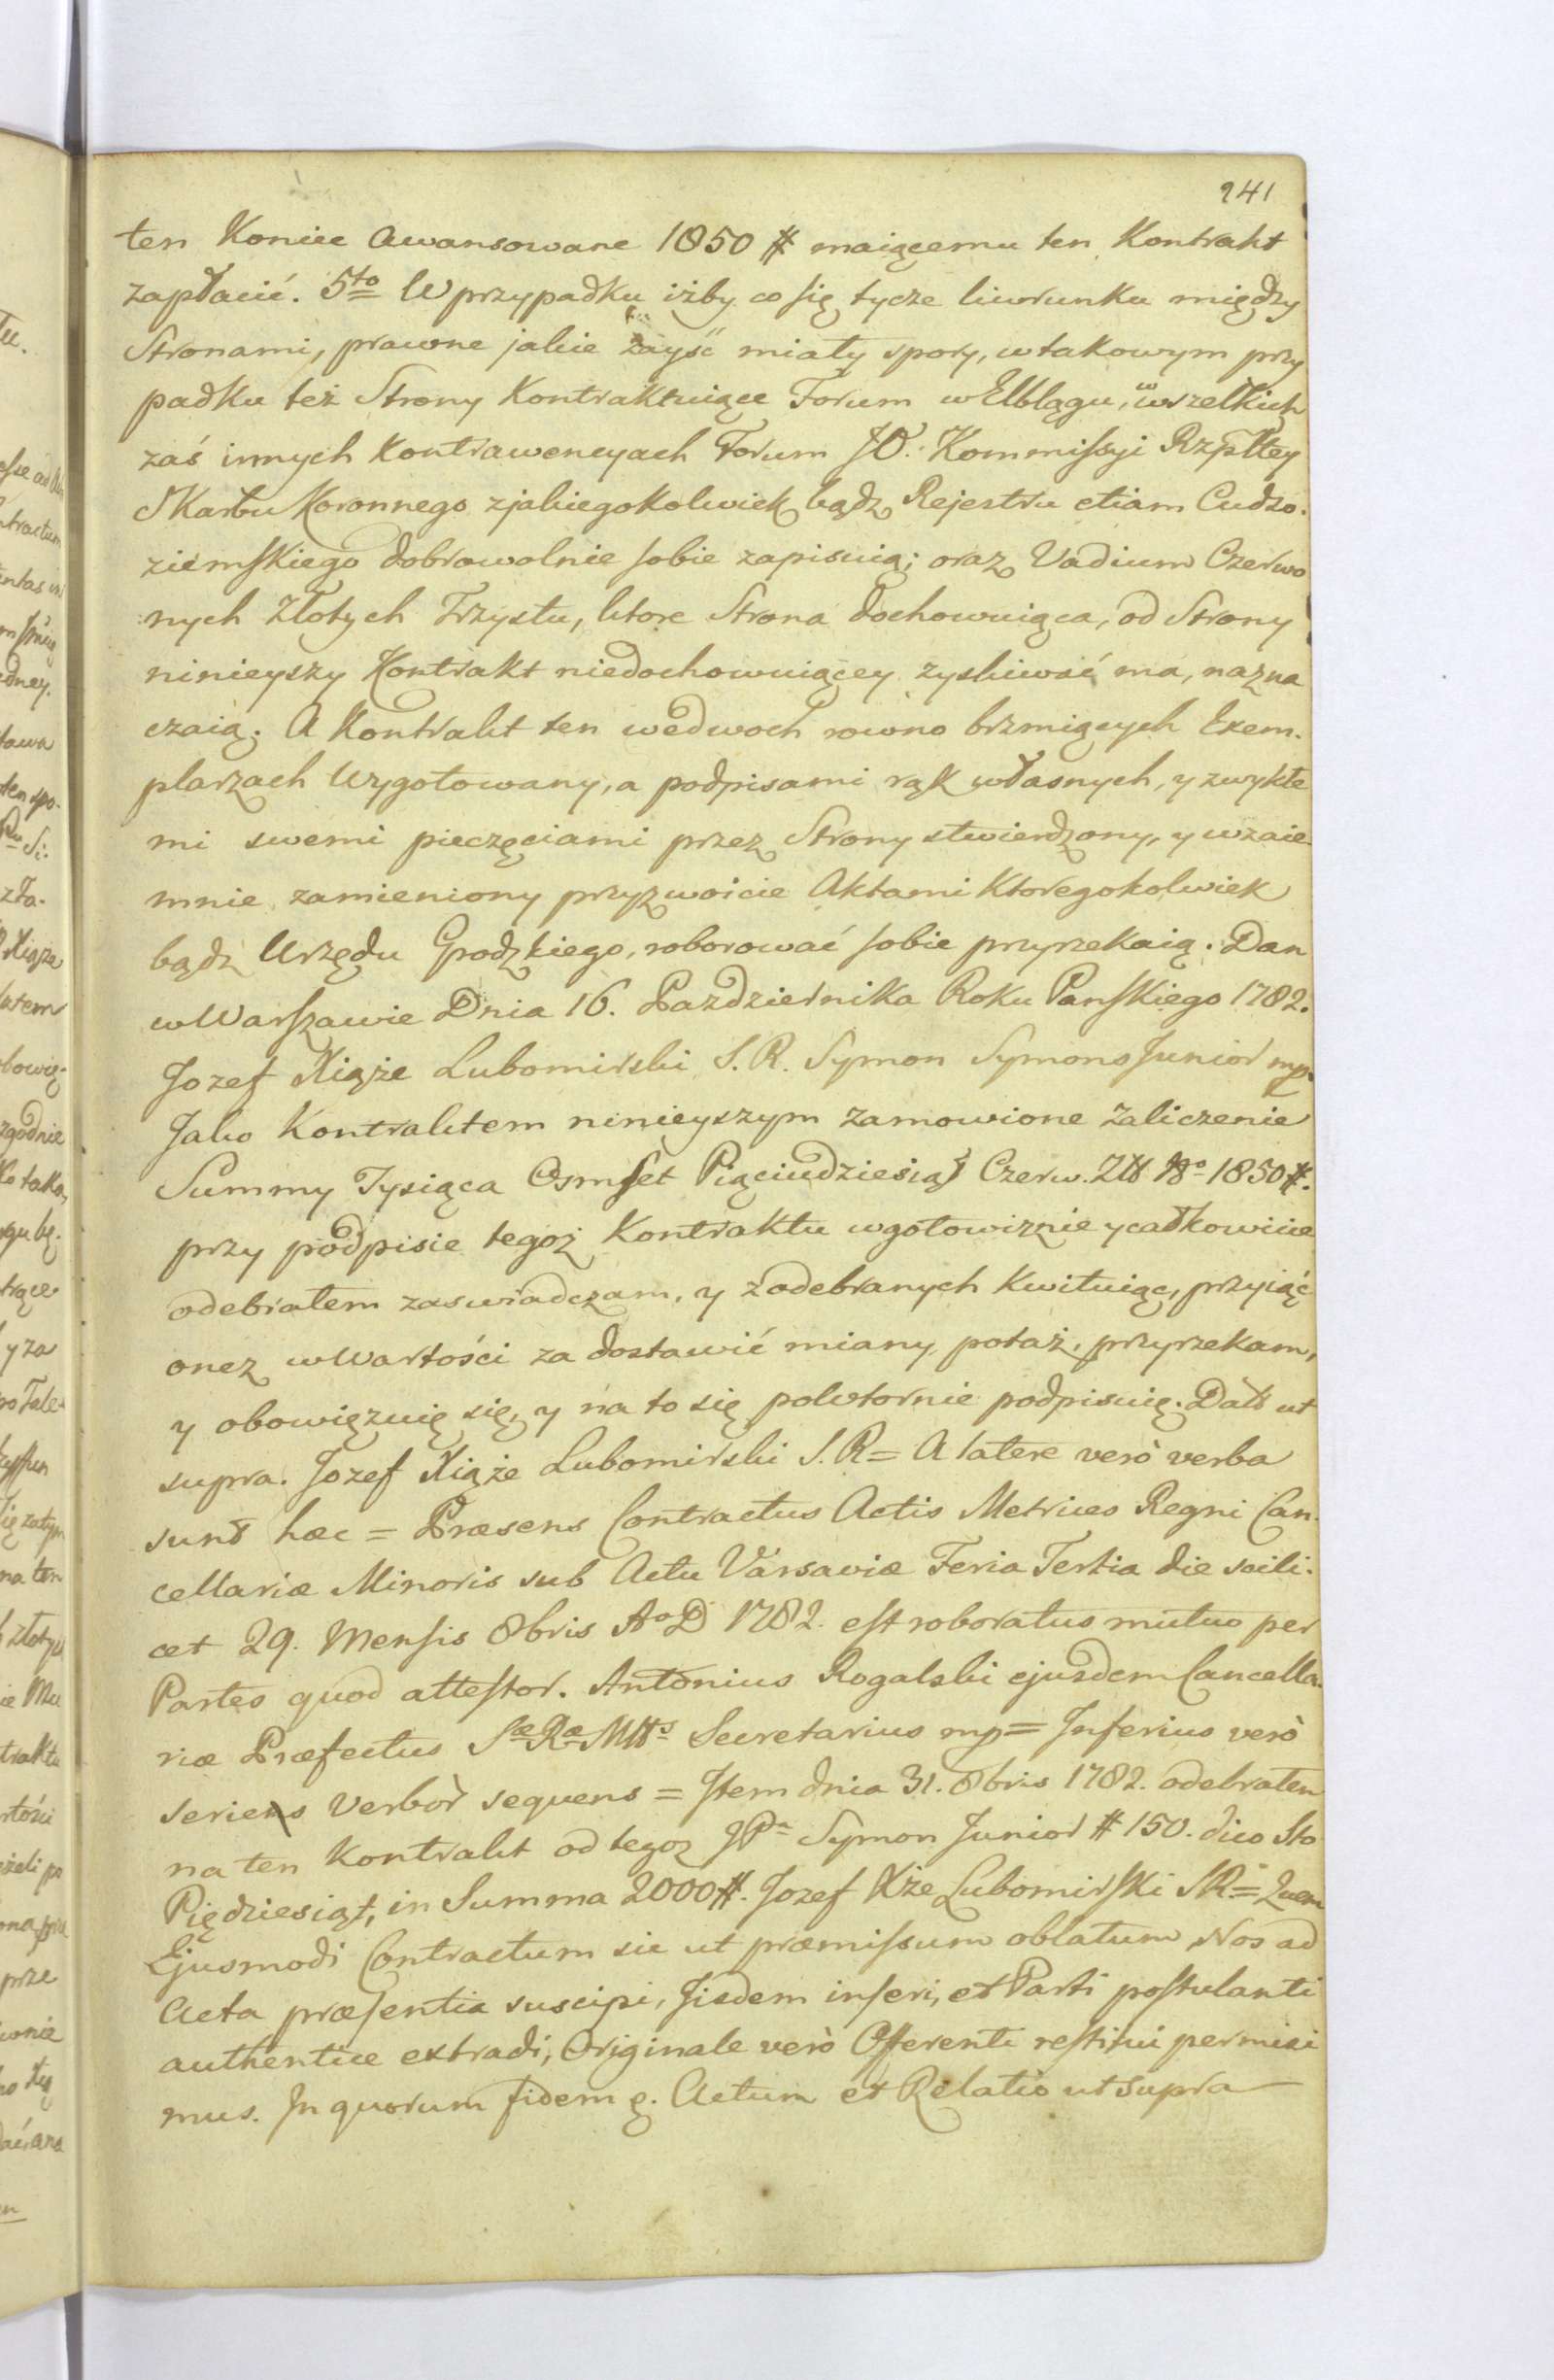 241
ten Koniec awansowane 1850 # maiącemu ten Kontrakt
zapłacić. 5to W przypadku iżby co się tycze liwrunku między
Stronami, prawne jakie zayść miały spory, w takowym przy
padku też Strony Kontraktuiące Forum w Elblągu, w wszelkich
zaś innych Kontrawencyach Forum JO. Kommissyi Rzpltey
Skarbu Koronnego z jakiegokolwiek bądź Rejestru etiam Cudzo.
ziemskiego dobrowolnie sobie zapisuią; oraz Vadium Czerwo
nych Złotych Trzystu, ktore Strona dochowuiąca, od Strony
ninieyszy Kontrakt niedochowuiącey zyskiwać ma, nazna
czaią. A Kontrakt ten we dwoch rowno brzmiących Exem.
plarzach Wygotowany, a podpisami rąk własnych, y zwykłe
mi swemi pieczęciami przez Strony stwierdzony, y wzaie
mnie zamieniony przyzwoicie Aktami Ktoregokolwiek
bądz Urzędu Grodzkiego, roborować sobie przyrzekaią. Dan
w Warszawie Dnia 16. Pazdziernika Roku Panskiego 1782.
Jozef Xiąże Lubomirski S. R. Symon Symons Junior mp.
Jako Kontraktem ninieyszym zamowione Zaliczenie
Summy Tysiąca Osmset Pięciudziesiąt Czerw. Złł No 1850 #.
przy podpisie tegoż Kontraktu w gotowiznie y całkowicie
odebrałem zaswiadczam, y z odebranych Kwituiąc, przyiąć
onez w Wartości za dostawić miany potaż, przyrzekam,
y obowięzuię się, y na to się powtornie podpisuię. Datt ut
supra. Jozef Xiąże Lubomirski S. R = A latere verò verba
sunt hæc = Præsens Contractus Actis Metrices Regni Can.
cellariæ Minoris sub Actu Varsaviæ Feria Tertia die scili.
cet 29. Mensis 8bris Ao D 1782. est roboratus mutuo per
Partes quod attestor. Antonius Rogalski ejusdem Cancella.
riæ Præfectus Sæ Ræ Mtts Secretarius mp = Inferius verò
series Verbor sequens = Item dnia 31. 8bris 1782. odebrałem
na ten Kontrakt od tegoz JPa Symon Junior # 150. dico Sto
Piędziesiąt, in Summa 2000 #. Jozef Xże Lubomirski SR = Quem
Ejusmodi Contractum sic ut præmissum oblatum Nos ad
Acta præsentia suscipi, Jisdem inseri, et Parti postulanti
authentice extradi, Originale verò Offerenti restitui permisi
mus. In quorum fidem g. Actum et Relatio ut supra